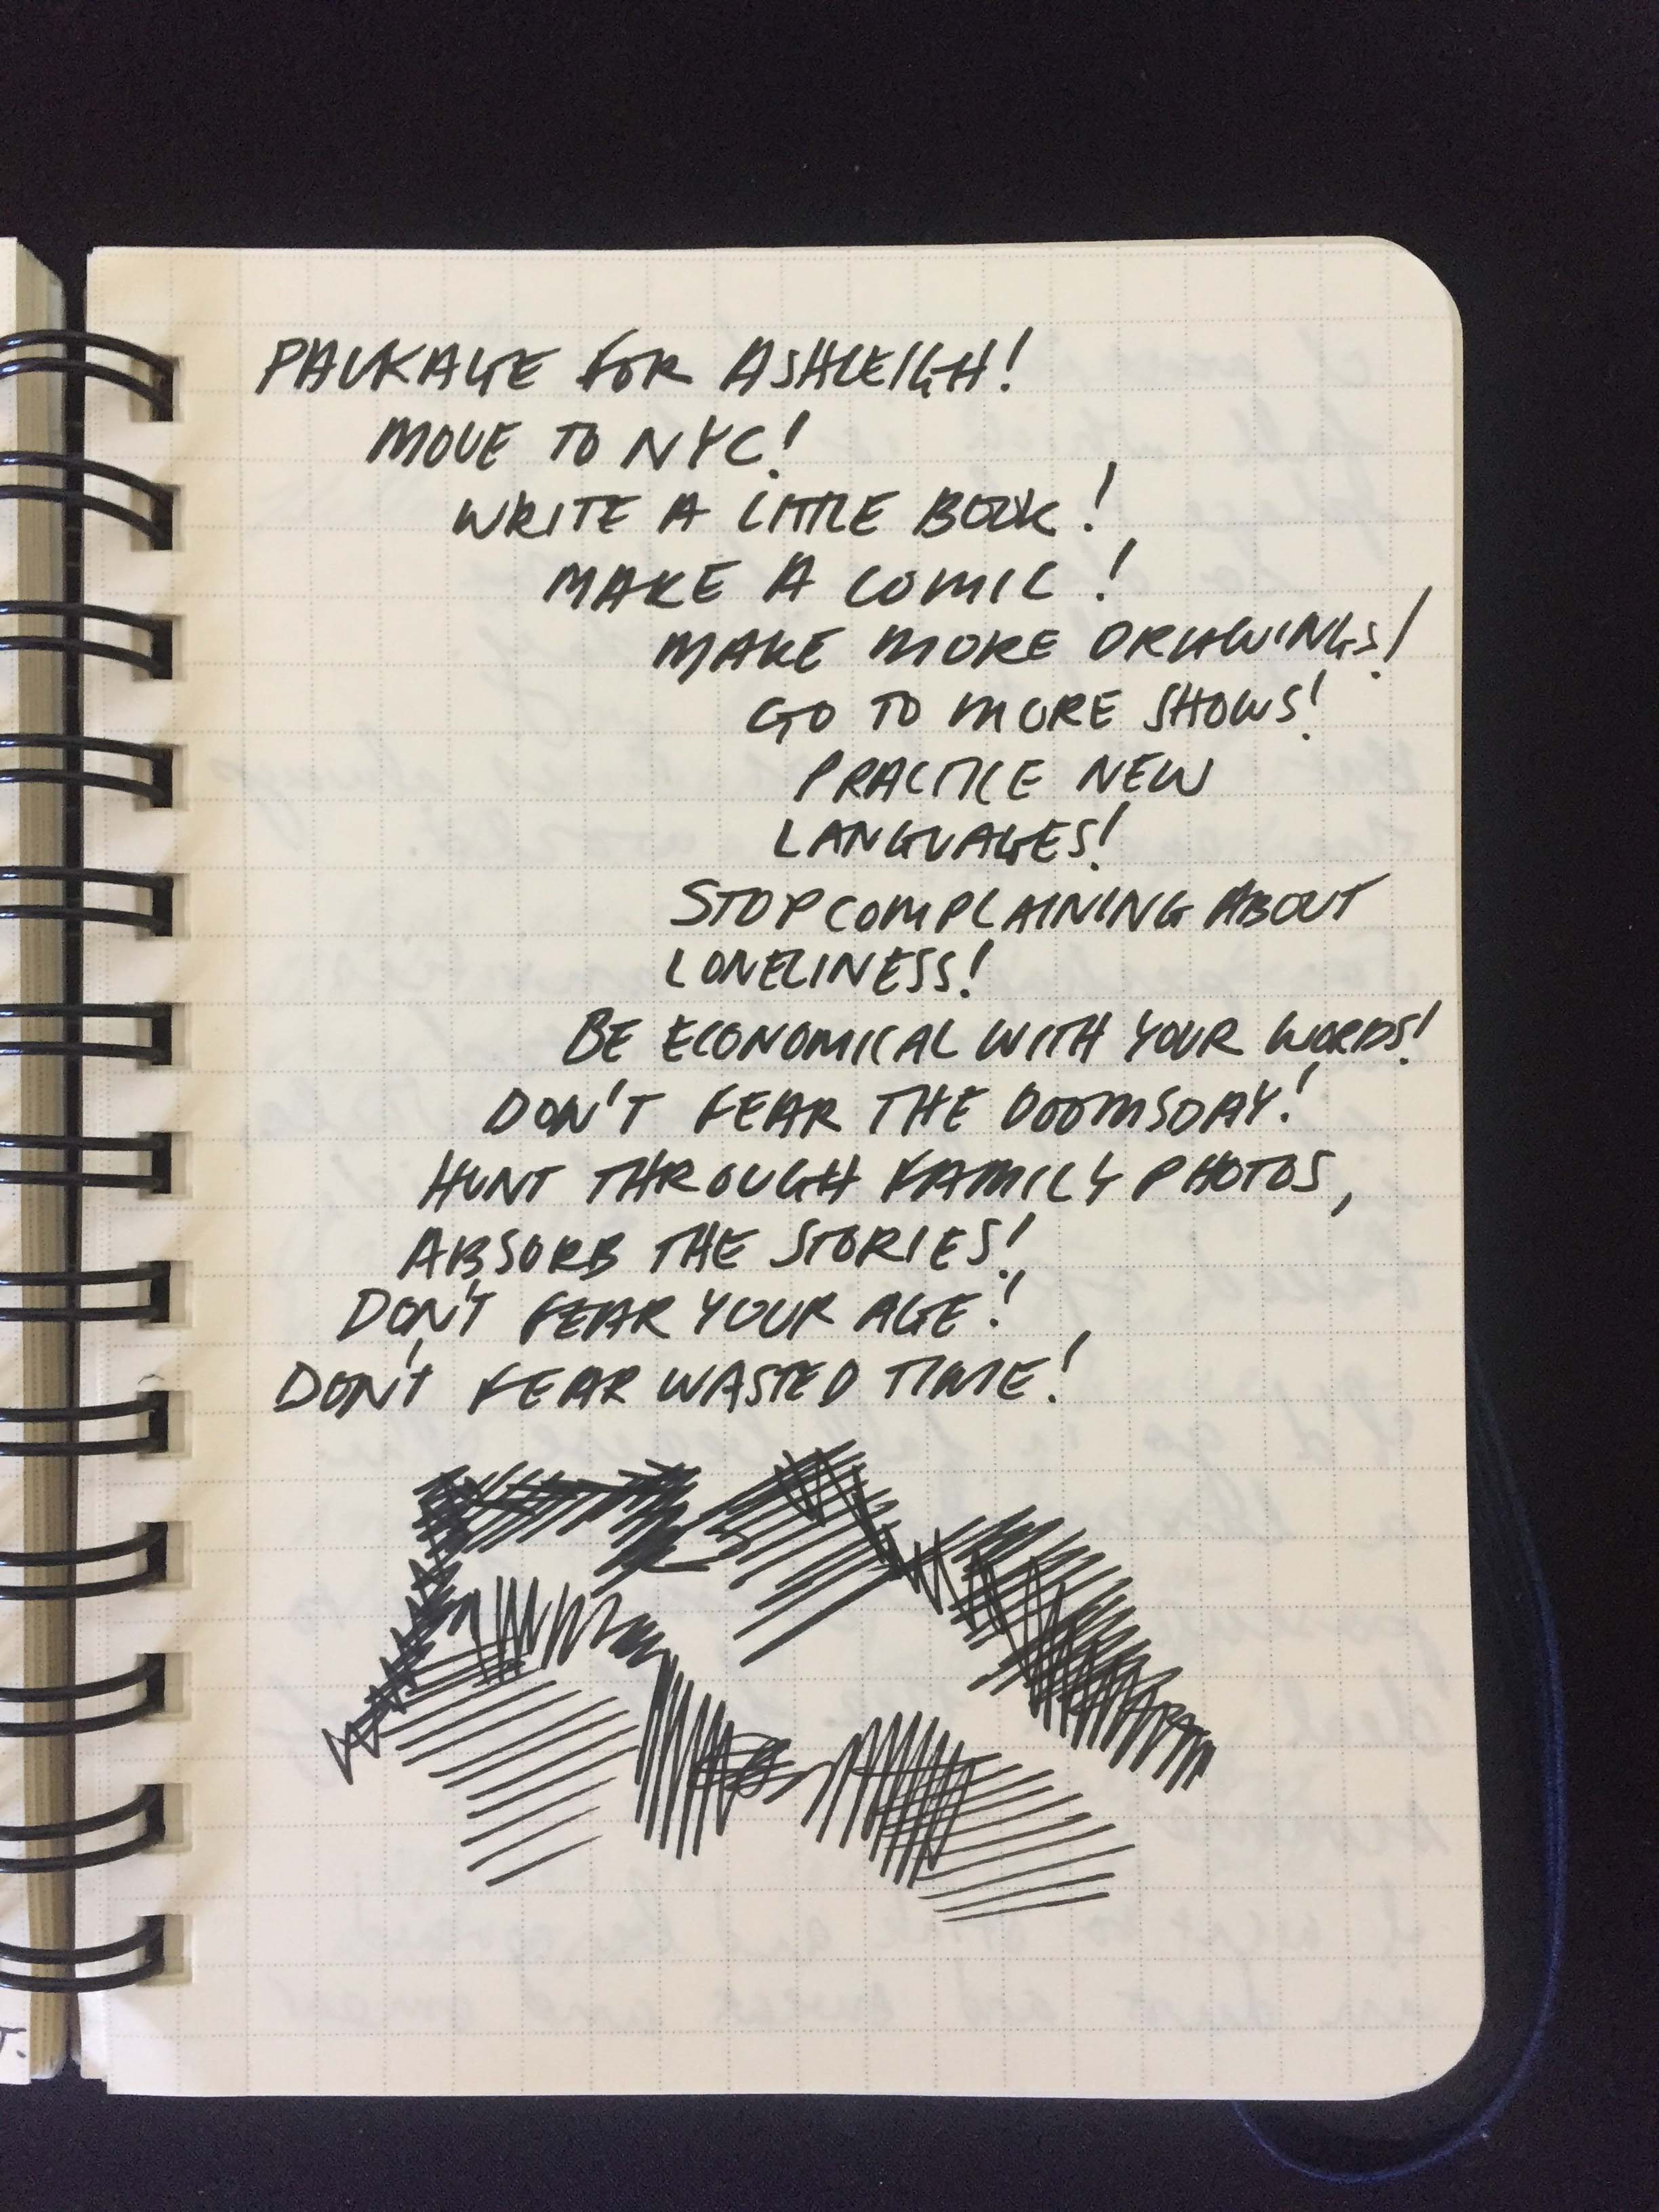 PACKAGE FOR ASHLEIGH!
MOVE TO NYC!
WRITE A LITTLE BOOK!
MAKE A COMIC!
MAKE MORE DRAWINGS!
GO TO MORE SHOWS!
PRACTICE NEW
LANGUAGES!
STOP COMPLAINING ABOUT
LONELINESS!
BE ECONOMICAL WITH YOUR WORDS!
DON'T FEAR THE DOOMSDAY!
HUNT THROUGH FAMILY PHOTOS,
ABSORB THE STORIES!
DON'T FEAR YOUR AGE!
DON'T FEAR WASTED TIME!